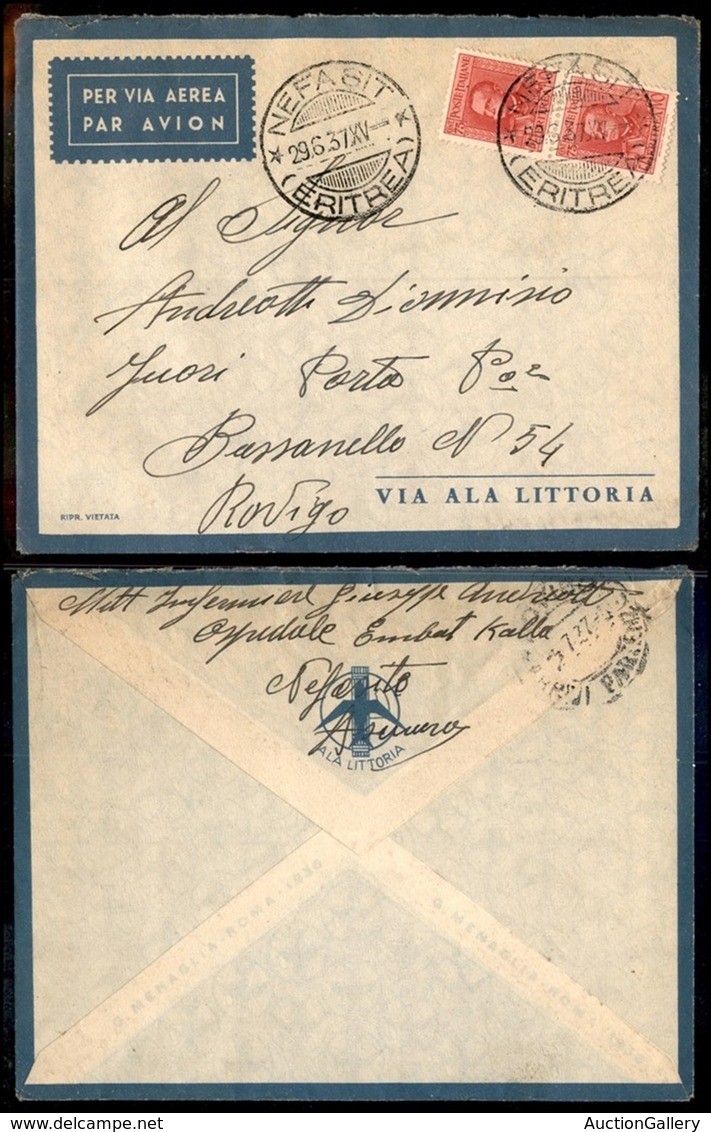 PER VIA AEREA
PAR AVION
NEFASIT
29.6.37 XV
(ERITREA)
POSTE ITALIANE
75
NEFASIT
(ERITREA)
Al Signor
Andreotti Dionnisio
Fuori Porta Po
Bassanello N 54
Rovigo
VIA ALA LITTORIA
RIPR. VIETATA
Mitt Infermiere Giuseppe Andreotti
Ospedale Embat Kalla
Nefasito
Asmara
ALA LITTORIA
G. MENAGLIA ROMA - 1936
G. MENAGLIA - ROMA - 1936
AuctionGallery